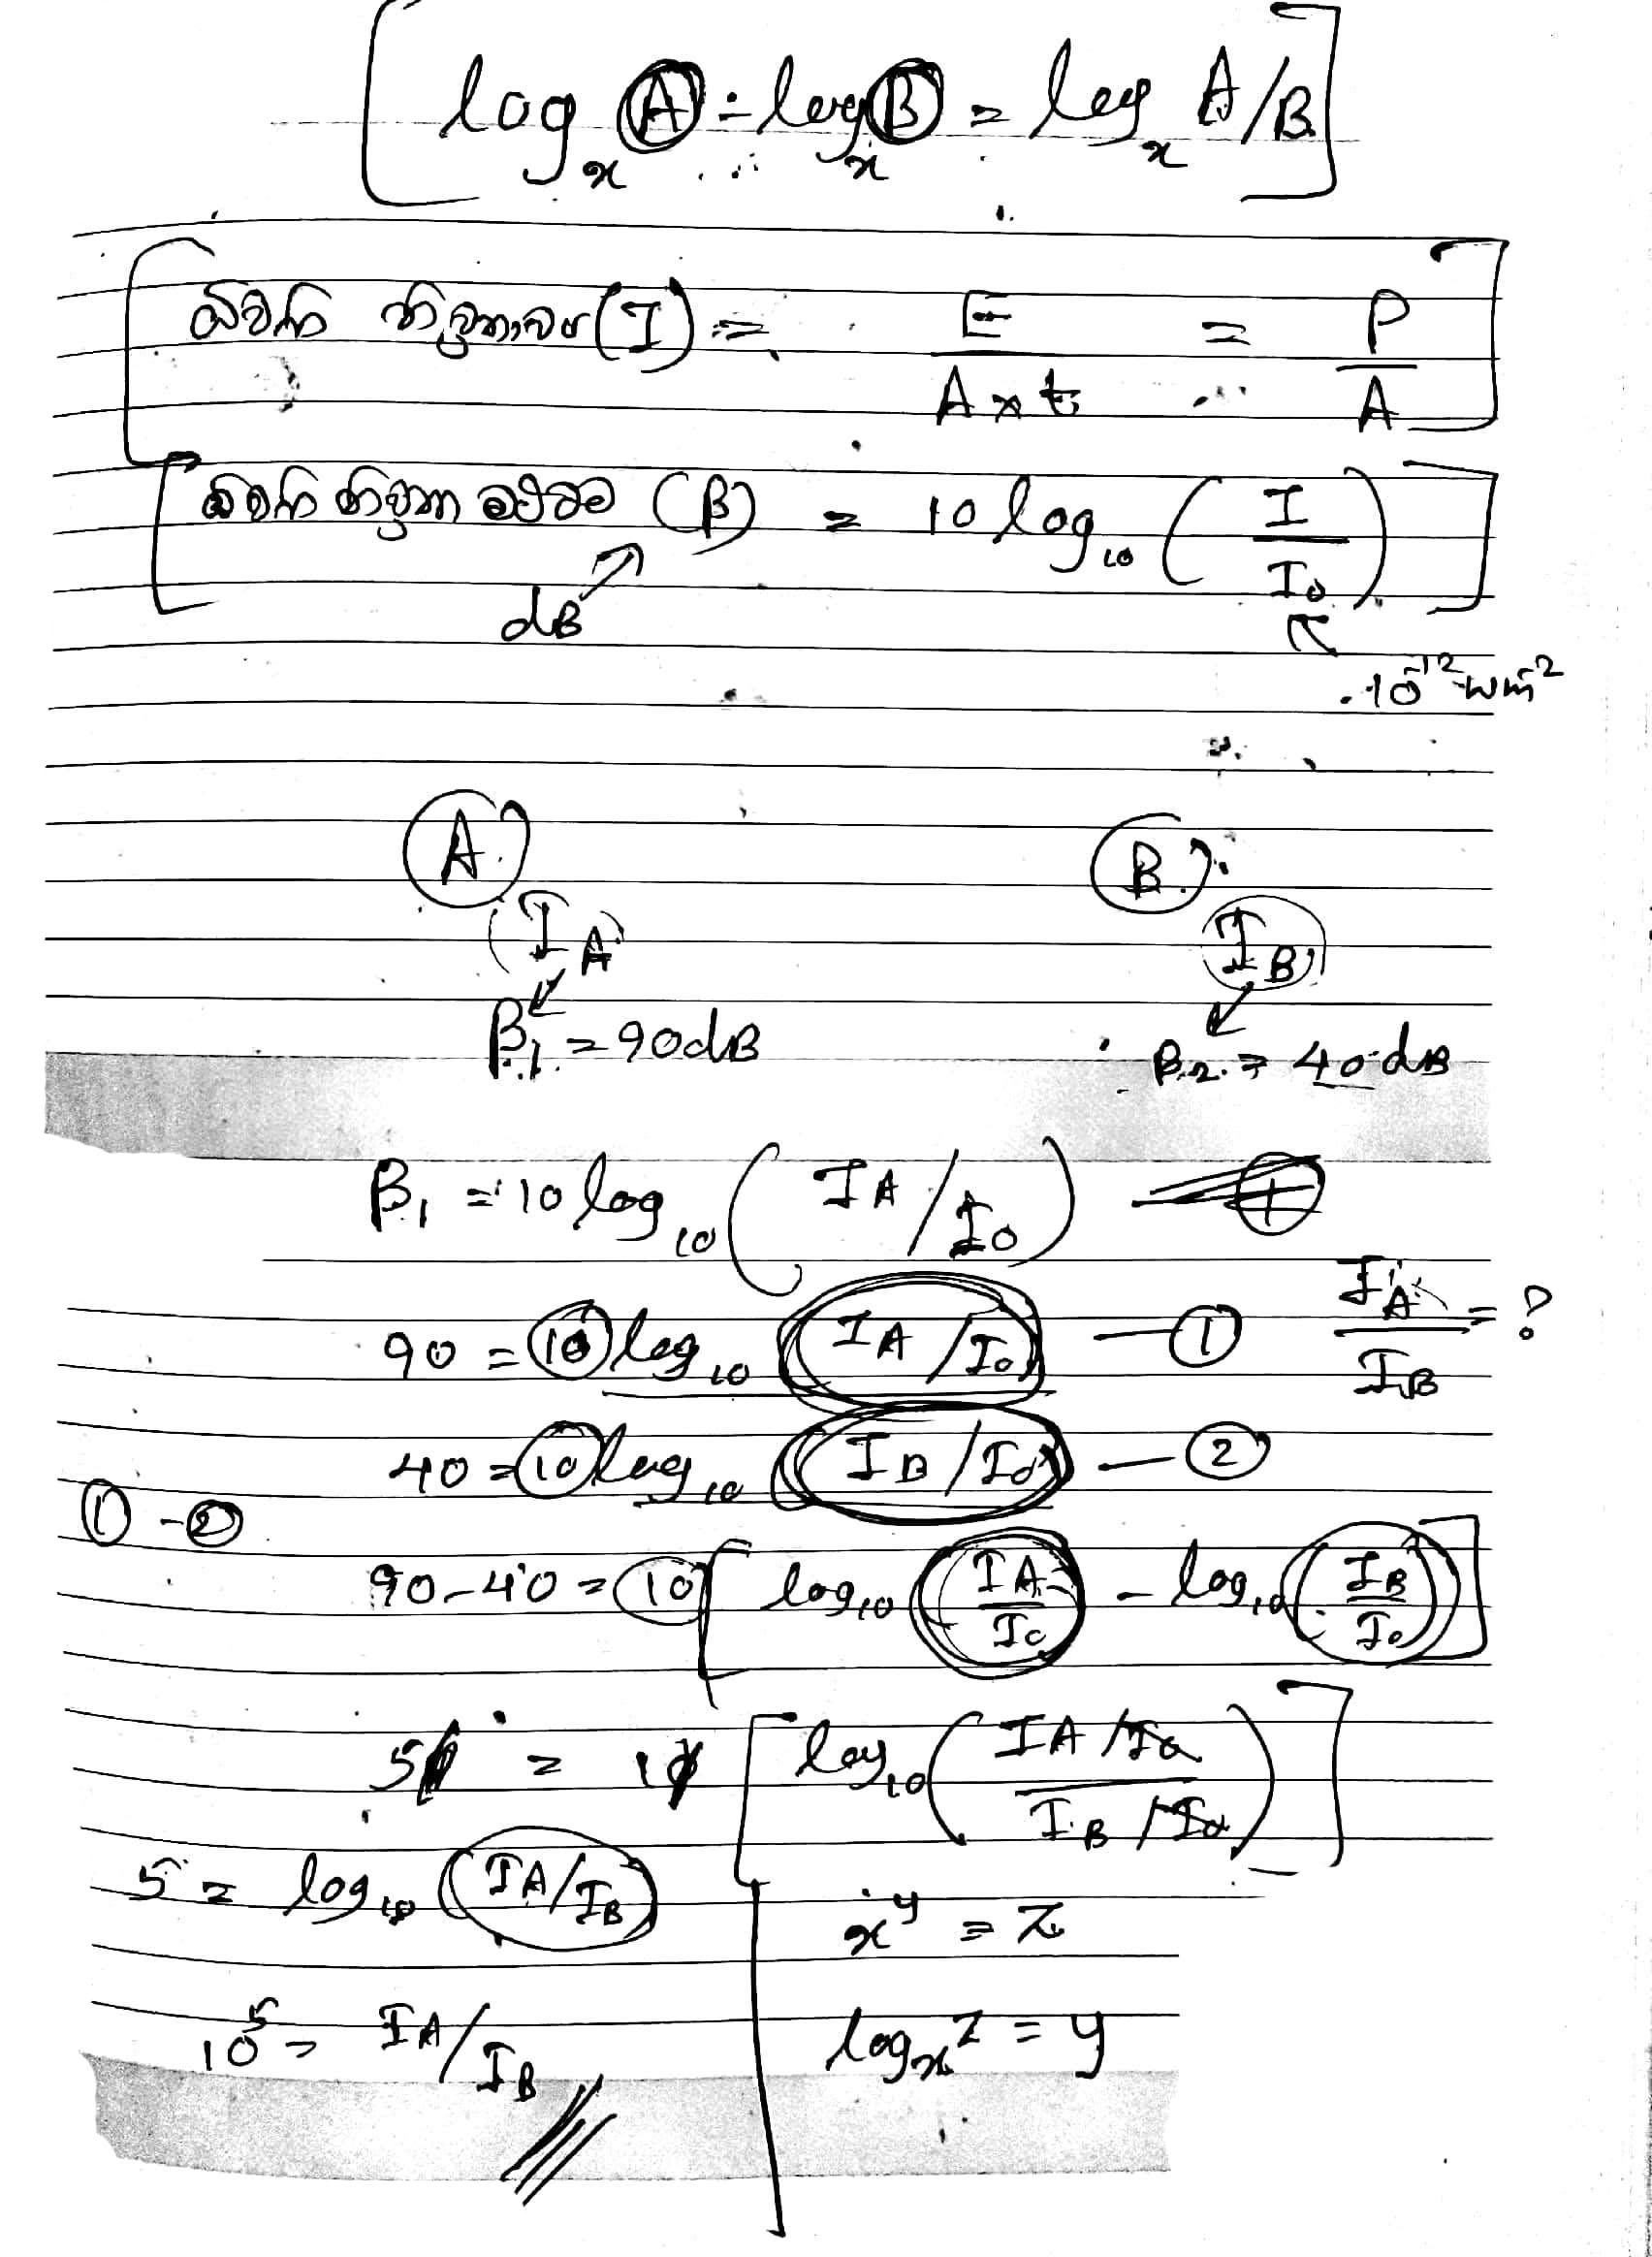 [ log_x A - log_x B = log_x A/B ]
[ ධ්වනි තීව්‍රතාවය (I) = E / A × t = P / A ]
[ ධ්වනි තීව්‍රතා මට්ටම (β) = 10 log₁₀ ( I / I₀ ) ]
dB
10⁻¹² Wm⁻²
A B
I_A I_B
β₁ = 90 dB β₂ = 40 dB
β₁ = 10 log₁₀ ( I_A / I₀ ) — ①
90 = 10 log₁₀ ( I_A / I₀ ) — ① I_A / I_B = ?
40 = 10 log₁₀ ( I_B / I₀ ) — ②
① - ②
90 - 40 = 10 [ log₁₀ ( I_A / I₀ ) - log₁₀ ( I_B / I₀ ) ]
50 = 10 [ log₁₀ ( I_A / I₀ / I_B / I₀ ) ]
5 = log₁₀ ( I_A / I_B )
x^y = z
10⁵ = I_A / I_B
log_x z = y